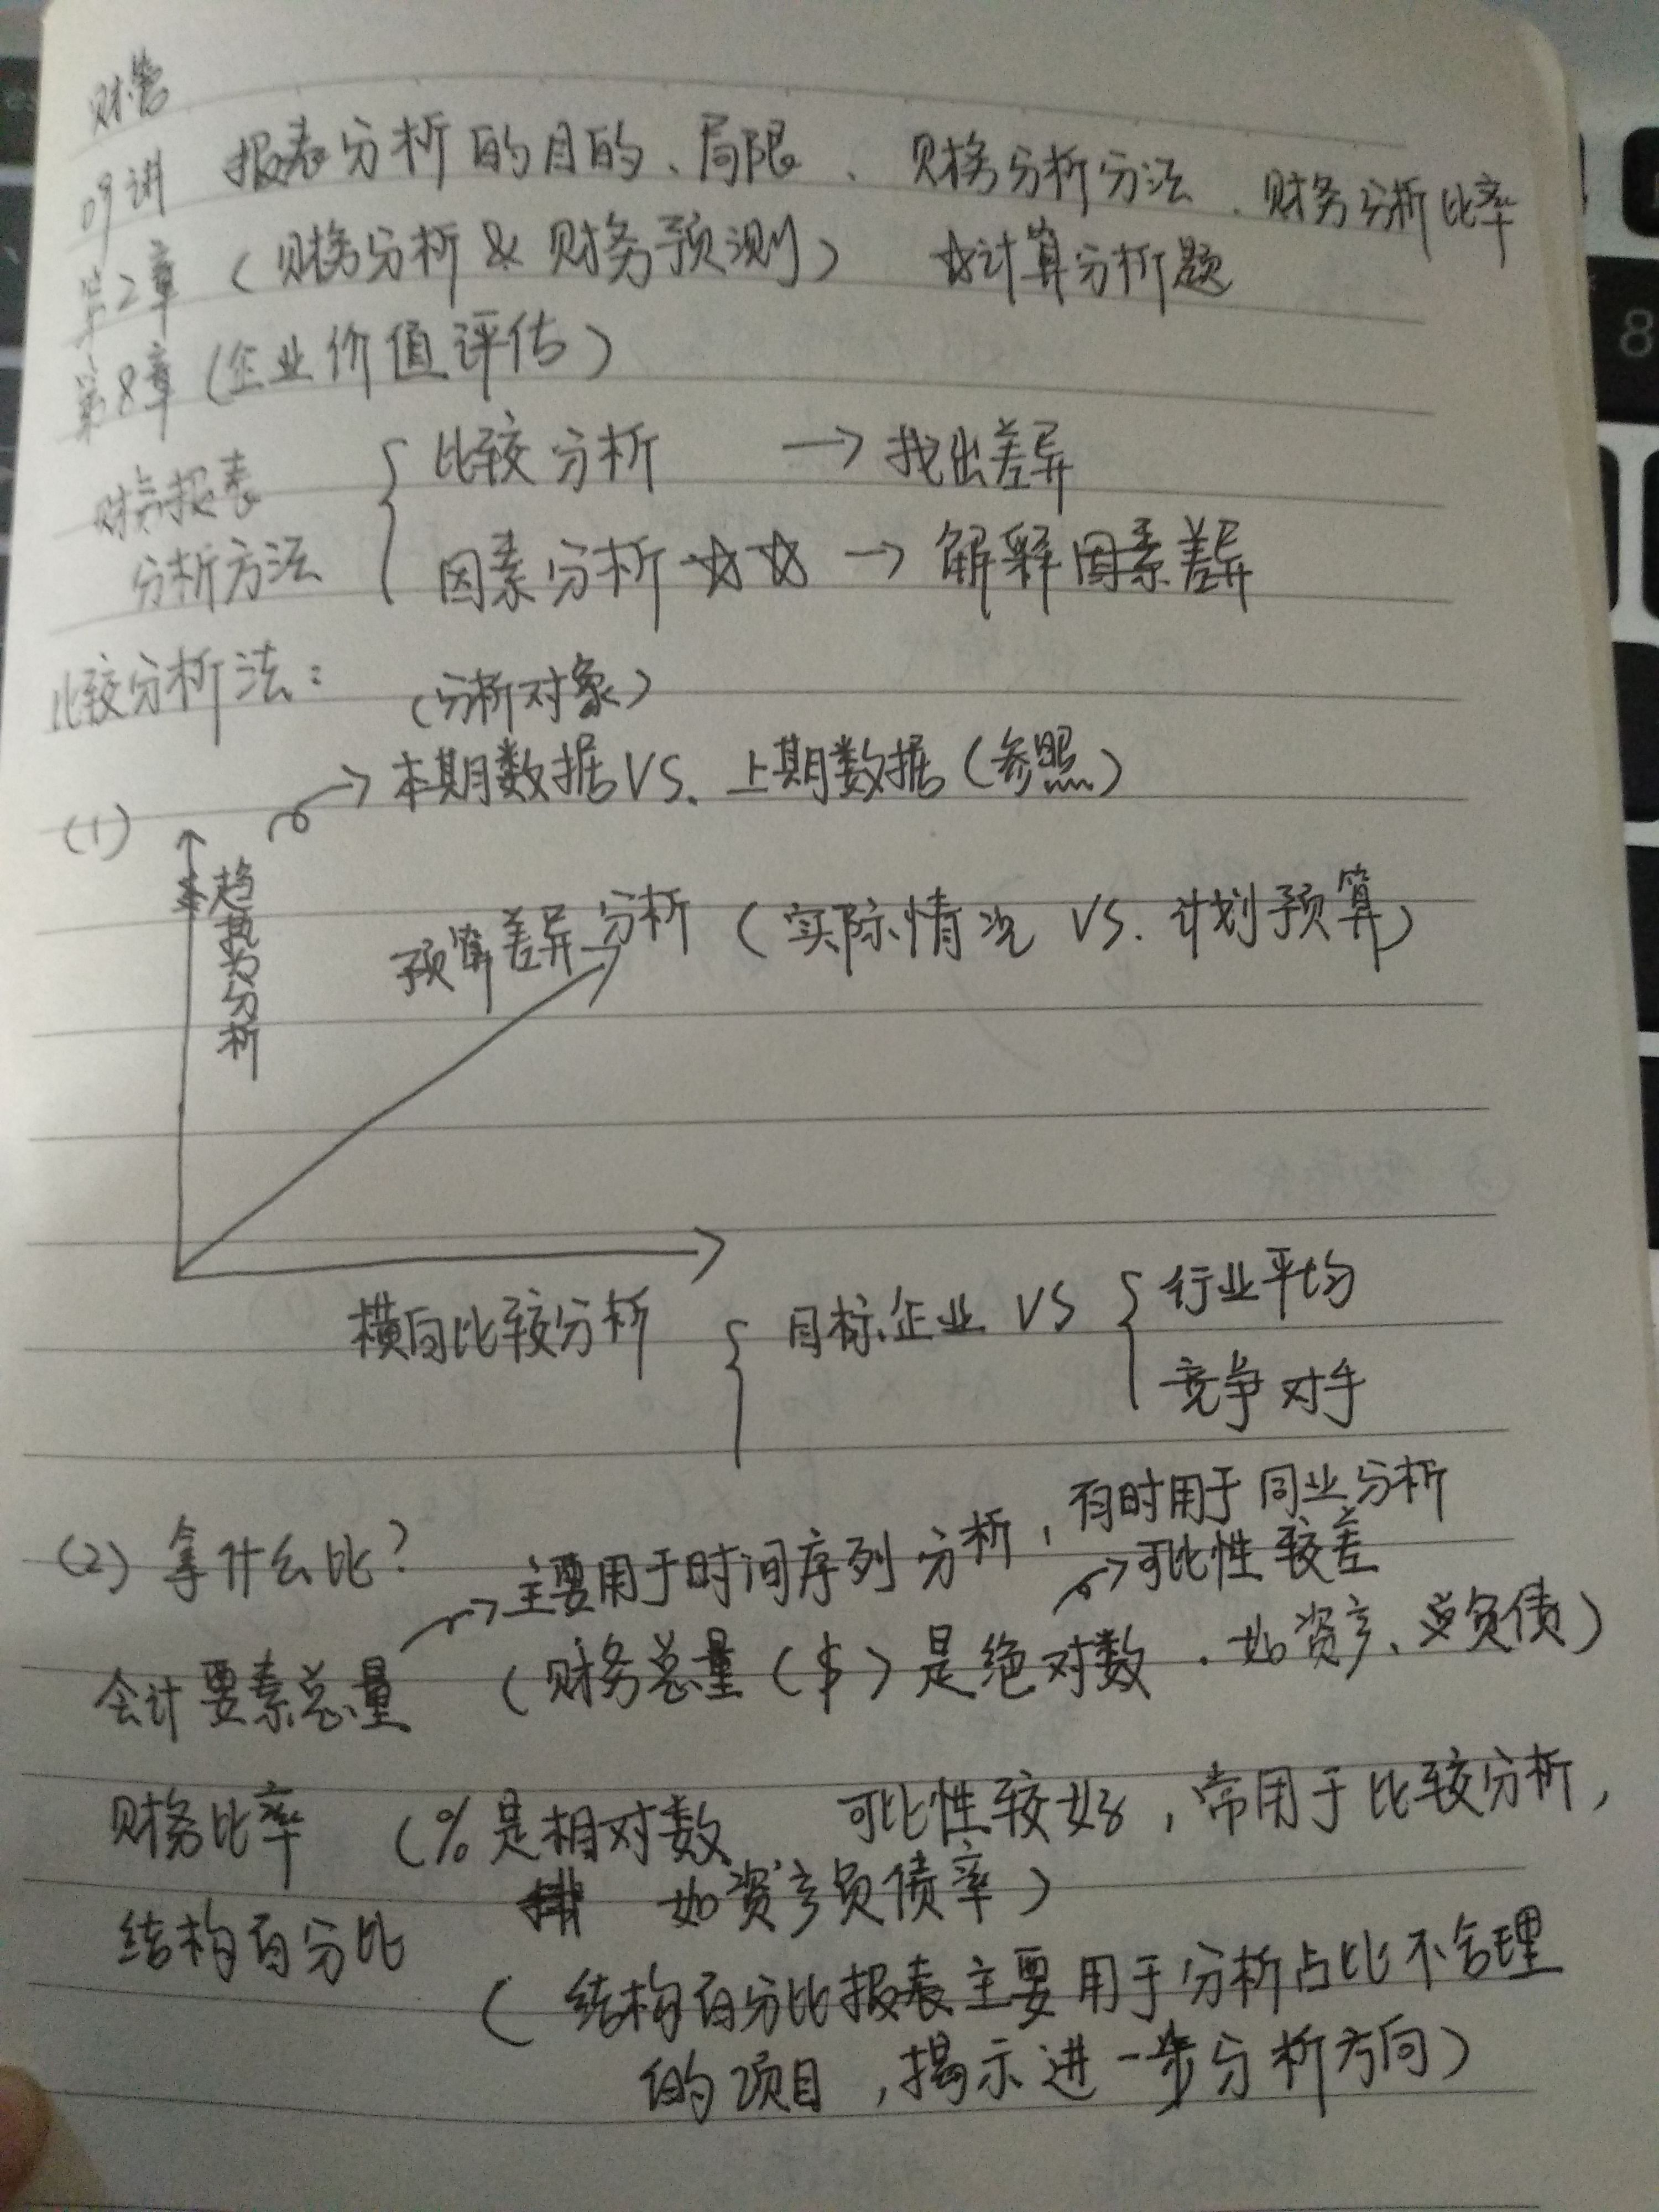 财管
09讲 报表分析的目的、局限、财务分析方法、财务分析比率
第2章（财务分析 & 财务预测） ☆计算分析题
第8章（企业价值评估）
财务报表分析方法 { 比较分析 → 找出差异
因素分析 ☆☆ → 解释因素差异
比较分析法：
（分析对象）
(1) → 本期数据 VS. 上期数据（参照）
趋势分析
预算差异分析（实际情况 VS. 计划预算）
横向比较分析 { 目标企业 VS { 行业平均
竞争对手
(2) 拿什么比？
→ 主要用于时间序列分析，有时用于同业分析
→ 可比性较差
会计要素总量 （财务总量（$）是绝对数．如资产、负债）
财务比率 （% 是相对数 可比性较好，常用于比较分析，
如资产负债率）
结构百分比
（结构百分比报表主要用于分析占比不合理
的项目，揭示进一步分析方向）